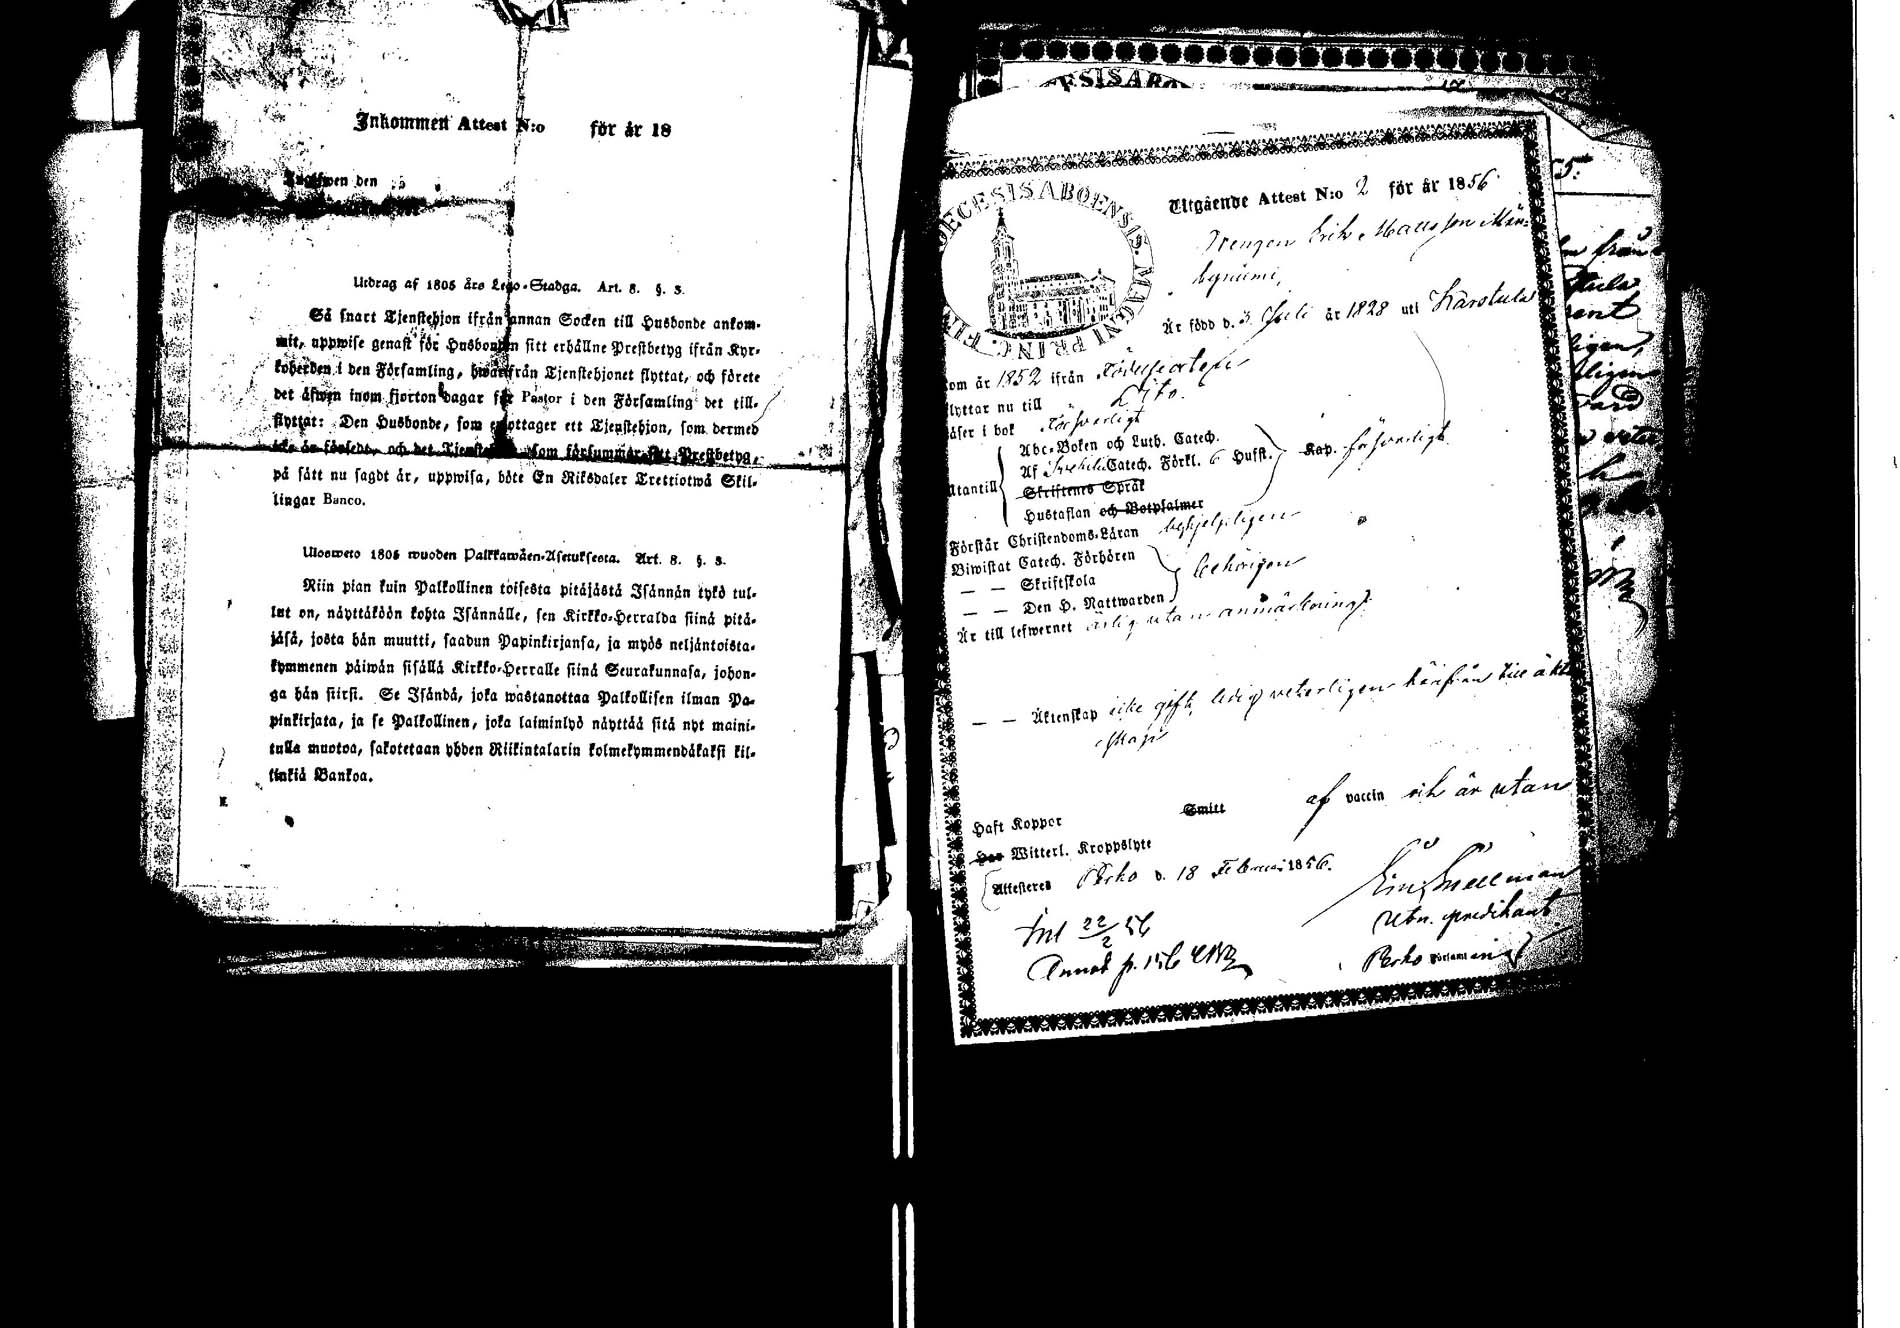 Inkommen Attest N:o för år 18
den
Utdrag af 1805 års Lego-Stadga. Art. 8. §. 3.
Så snart Tjenstehjon ifrån annan Socken till Husbonde ankom-
mit, uppwise genast för Husbonden sitt erhållne Prestbetyg ifrån Kyr-
koherden i den Församling, hwarifrån Tjenstehjonet flyttat, och förete
det äfwen inom fjorton dagar för Pastor i den Församling det till-
flyttat: Den Husbonde, som emottager ett Tjenstehjon, som dermed
icke är försedt, och det Tjenstehjon som försummar sitt Prestbetyg,
på sätt nu sagdt är, uppwisa, böte En Riksdaler Trettiotwå Skil-
lingar Banco.
Ulosweto 1805 wuoden Palkkawäen-Asetuksesta. Art. 8. §. 3.
Niin pian kuin Palkollinen toisesta pitäjästä Isännän tykö tul-
lut on, näyttäköön kohta Isännälle, sen Kirkko-Herralda siinä pitä-
jäsä, josta hän muutti, saadun Papinkirjansa, ja myös neljäntoista-
kymmenen päiwän sisällä Kirkko-Herralle siinä Seurakunnasa, johon-
ga hän siirsi. Se Isändä, joka wastanottaa Palkollisen ilman Pa-
pinkirjata, ja se Palkollinen, joka laiminlyö näyttää sitä nyt maini-
tulla muotoa, sakotetaan yhden Riikintalarin kolmekymmendäkaksi kil-
linkiä Bankoa.
DIECESIS ABOENSIS. MAGNI PRINC. FIN
Utgående Attest N:o 2 för år 1856.
Drengen Erik Matts son Män-
Är född d. 3 Juli år 1828 uti Karstula
om år 1852 ifrån
lyttar nu till Lojto.
äser i bok försvarligt
Abc-Boken och Luth. Catech.
Af Svebilii Catech. Förkl. 6 Hufst. Kap. försvarligt
Utantill
Skriftenes Språk
Hustaflan och Botpsalmer
Förstår Christendoms-Läran behjelpligen
Biwistat Catech. Förhören
— — Skriftskola behörigen
— — Den H. Nattwarden
Är till lefwernet ärlig utan anmärkning
— — Äktenskap icke gift, ledig veterligen härifrån till äkt
skap
Haft Koppor Smitt af vaccin och är utan
Har Witterl. Kroppslyte
Attesteras Perho d. 18 Februari 1856.
Snellman
Inl 22/2 56 predikant
Annot p. 156 Perho Församling